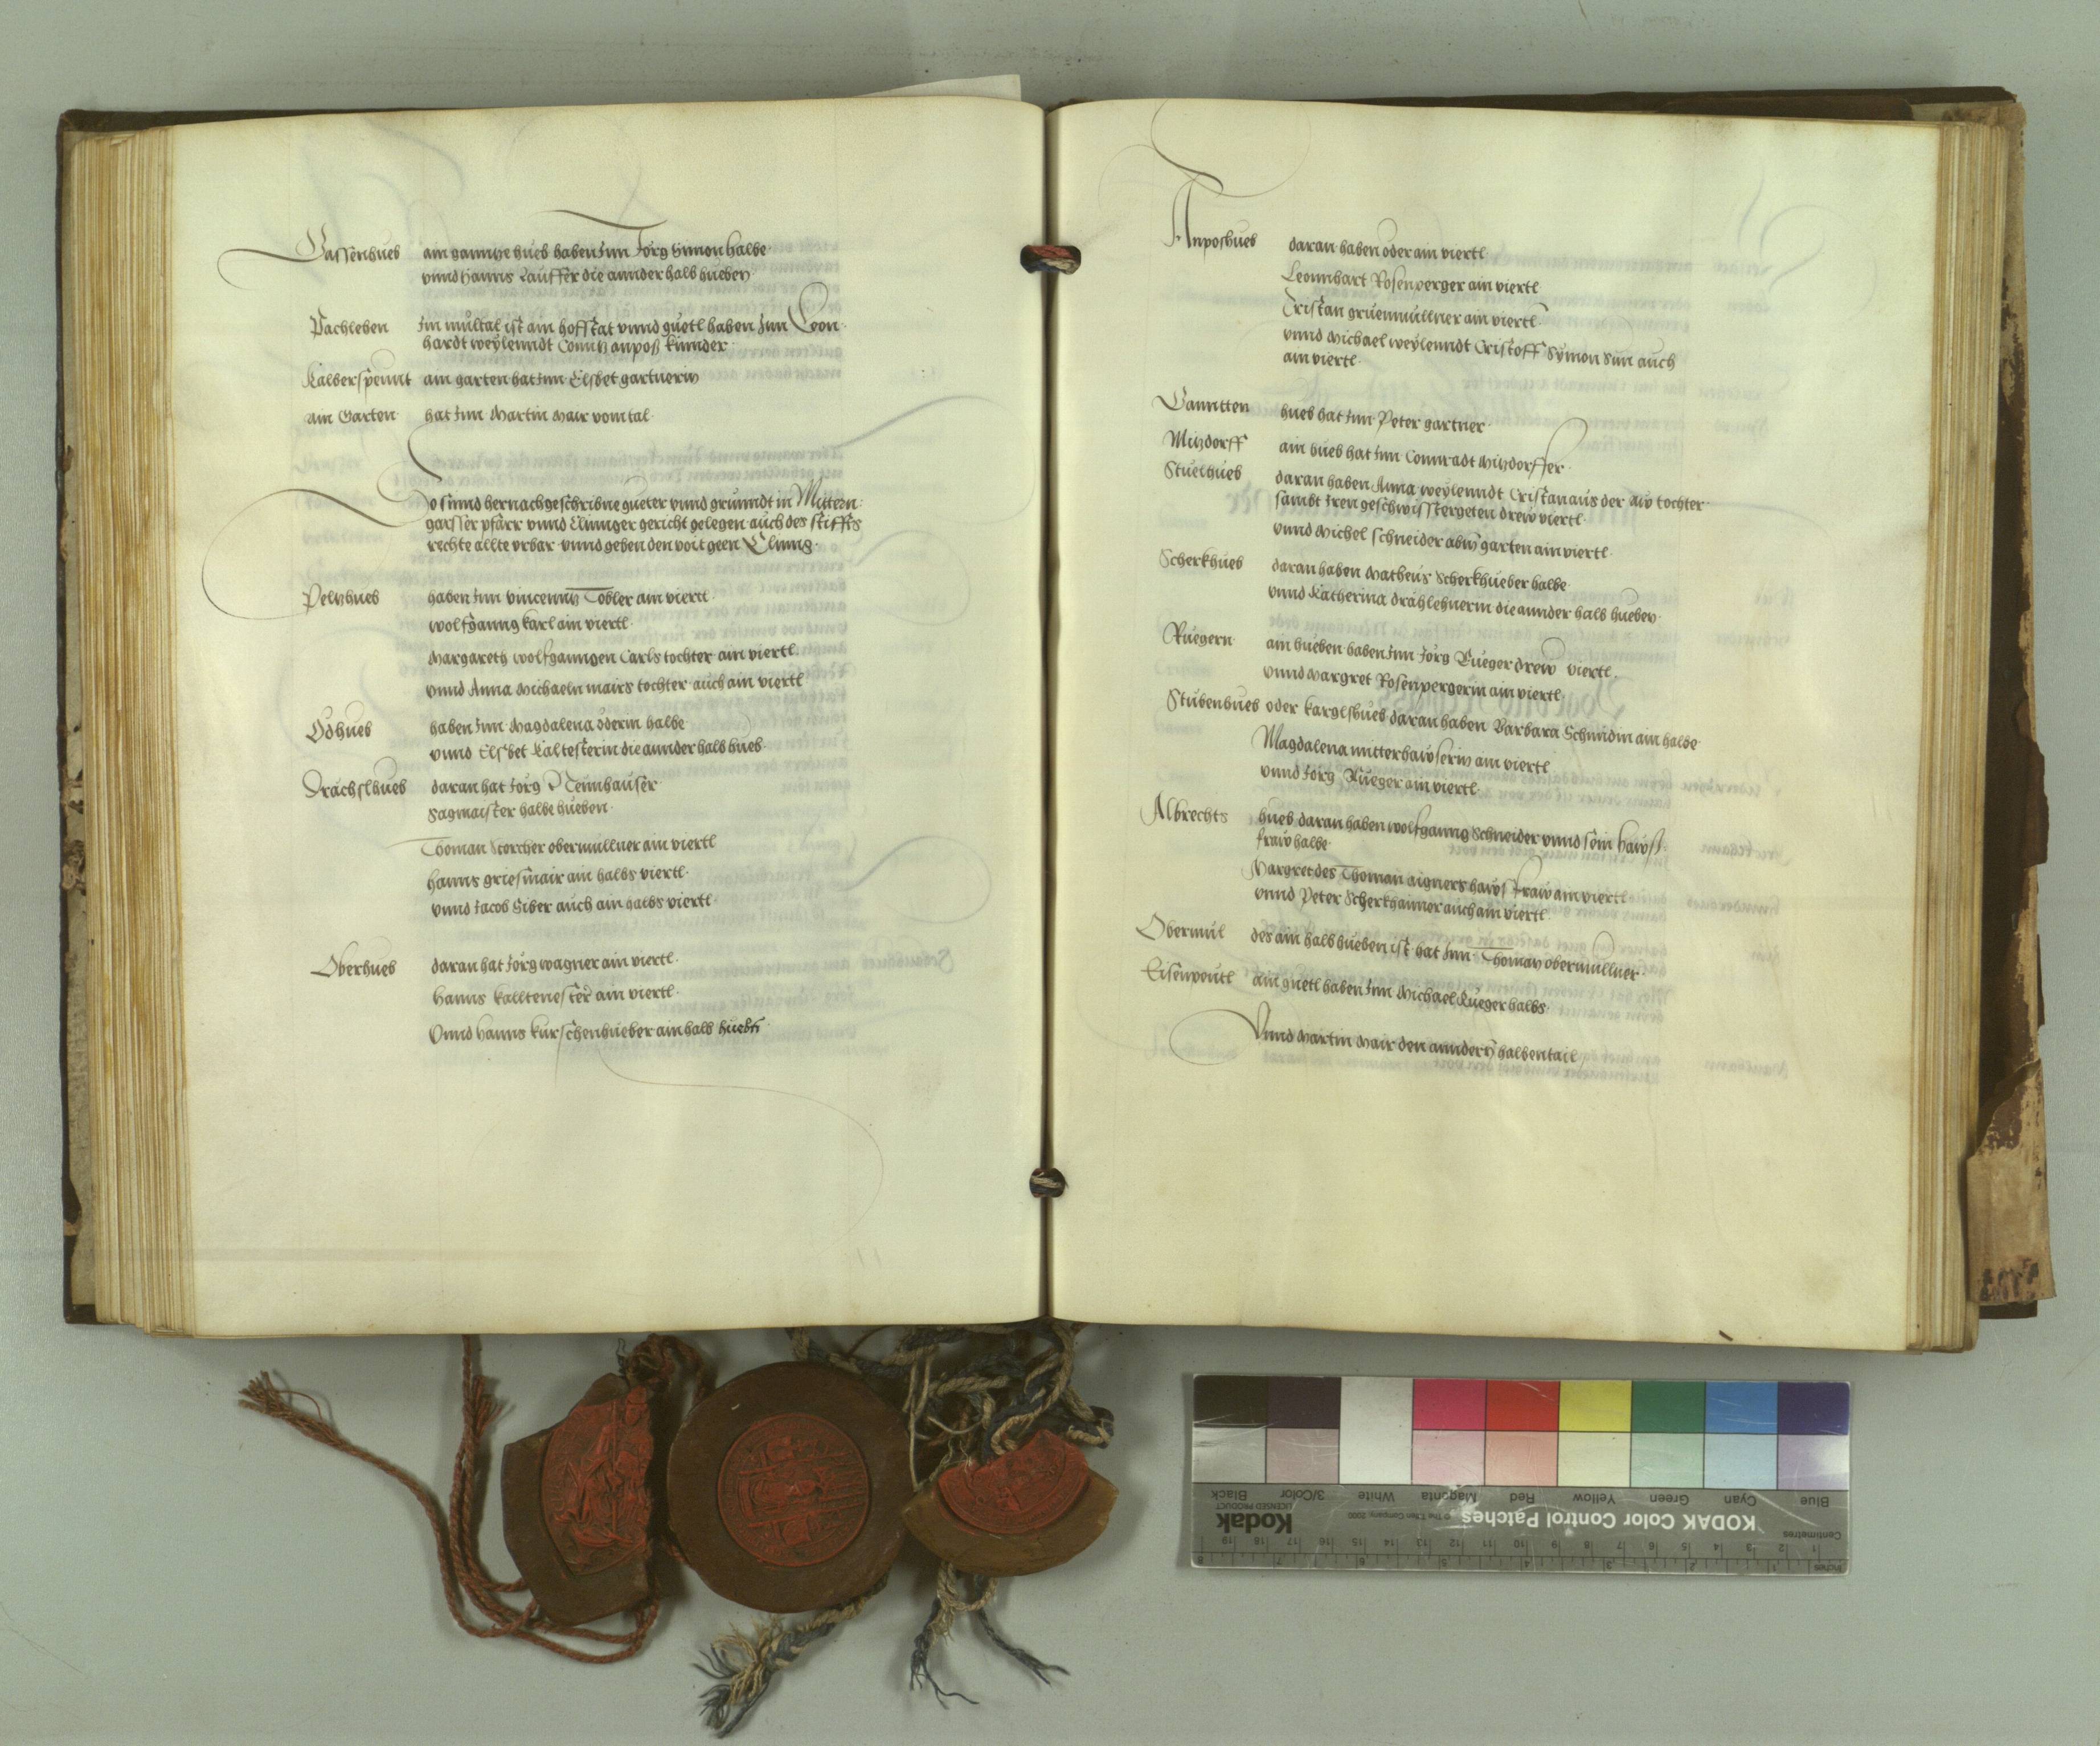 Gassenhueb ain ganntze hueb haben Inn Jorg Simon halbe
vnnd Hanns Lauffer die annder halb hueben
Pachlehen Im mültal ist ain hofstat vnnd guetl haben Inn Leon
hardt weylenndt Conntz anpoß kinnder
Kalberspeunt ain garten hat Inn Elsbet gartnerin
ain Garten hat Inn Martin Mair vom tal
So sinnd hernachgeschribne gueter vnnd grunndt in Mittern
garsser pfarr vnnd Clinnger gericht gelegen auch des stiffts
rechte allte vrbar vnnd geben den voit geen Clinng
Peltzhueb haben Inn vincenntz Tobler ain viertl
wolfganng karl ain viertl
Margareth wolfganngen Carls tochter ain viertl
vnnd Anna Michaeln mairs tochter auch ain viertl
Ödhueb haben Inn Magdalena öderin halbe
vnnd Elsbet kaltesterin die annder halb hueb
Drachslhueb daran hat Jorg Tennhauser
Sagmaister halbe hueben
Thoman Storcher obermullner ain viertl
hanns griesmair ain halbs viertl
vnnd Jacob Siber auch ain halbs viertl
Oberhueb daran hat Jorg wagner ain viertl
hanns kalltenester ain viertl
Vnnd hanns kurschenhueber ain halb huebn
Anposhueb daran haben öder ain viertl
Leonnhart Rosenperger ain viertl
Cristan gruenmullner ain viertl
vnnd Michael weylenndt Cristoff Symon Sun auch
ain viertl
hueb hat Inn Peter gartner
Mitzdorff ain hueb hat Inn Connradt Mitzdorffer
Stuelhueb daran haben Anna weylenndt Cristan aus der aw tochter
sambt Iren geschwisstergeten drew viertl
vnnd Michel schneider abm garten ain viertl
Scherkhueb daran haben Matheus Scherkhueber halbe
vnnd Katherina drahlehnerin die annder halb hueben
Ruegern ain hueben haben Inn Jorg Rueger drew viertl
vnnd Margret Rosenpergerin ain viertl
Stubenhueb oder karglshueb daran haben Barbara Schmidin ain halbe
Magdalena mitterhawserin ain viertl
vnnd Jorg Rueger ain viertl
Albrechts hueb daran haben wolfganng Schneider vnnd sein hawß
fraw halbe
Margret des Thoman aigners hawsfraw ain viertl
vnnd Peter Scherkhaimer auch ain viertl
Obermül des ain halb hueben ist hat Inn Thoman obermullner
Eisenpeutl ain guetl haben Inn Michael Rueger halbs
Vnnd Martin Mair den anndern halben tail
KODAK Color Control Patches
Kodak
LICENSED PRODUCT
© The Tiffen Company, 2000
Blue Cyan Green Yellow Red Magenta White 3/Color Black
Centimetres
Inches